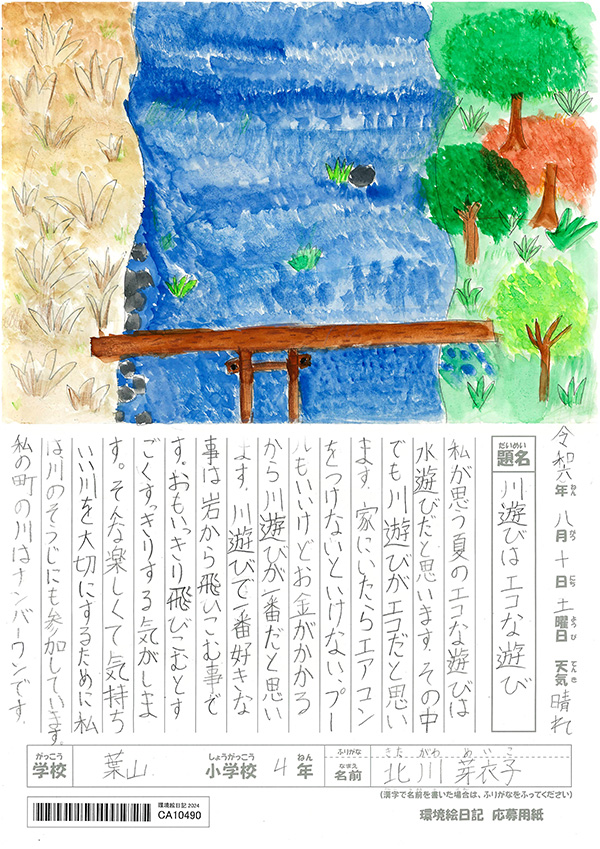 令和六年 八月 十日 土曜日 天気 晴れ
ねん がつ にち ようび てんき
だいめい
題名 川遊びはエコな遊び
私が思う夏のエコな遊びは
水遊びだと思います。その中
でも川遊びがエコだと思い
ます。家にいたらエアコン
をつけないといけない、プー
ルもいいけどお金がかかる
から川遊びが一番だと思い
ます。川遊びで一番好きな
事は岩から飛びこむ事で
す。おもいっきり飛びこむとす
ごくすっきりする気がしま
す。そんな楽しくて気持ち
いい川を大切にするために私
は川のそうじにも参加しています。
私の町の川はナンバーワンです。
がっこう しょうがっこう ねん ふりがな きた がわ めいこ
学校 葉山 小学校 4年 なまえ 名前 北川 芽衣子
(漢字で名前を書いた場合は、ふりがなをふってください)
環境絵日記 2024
CA10490
環境絵日記 応募用紙